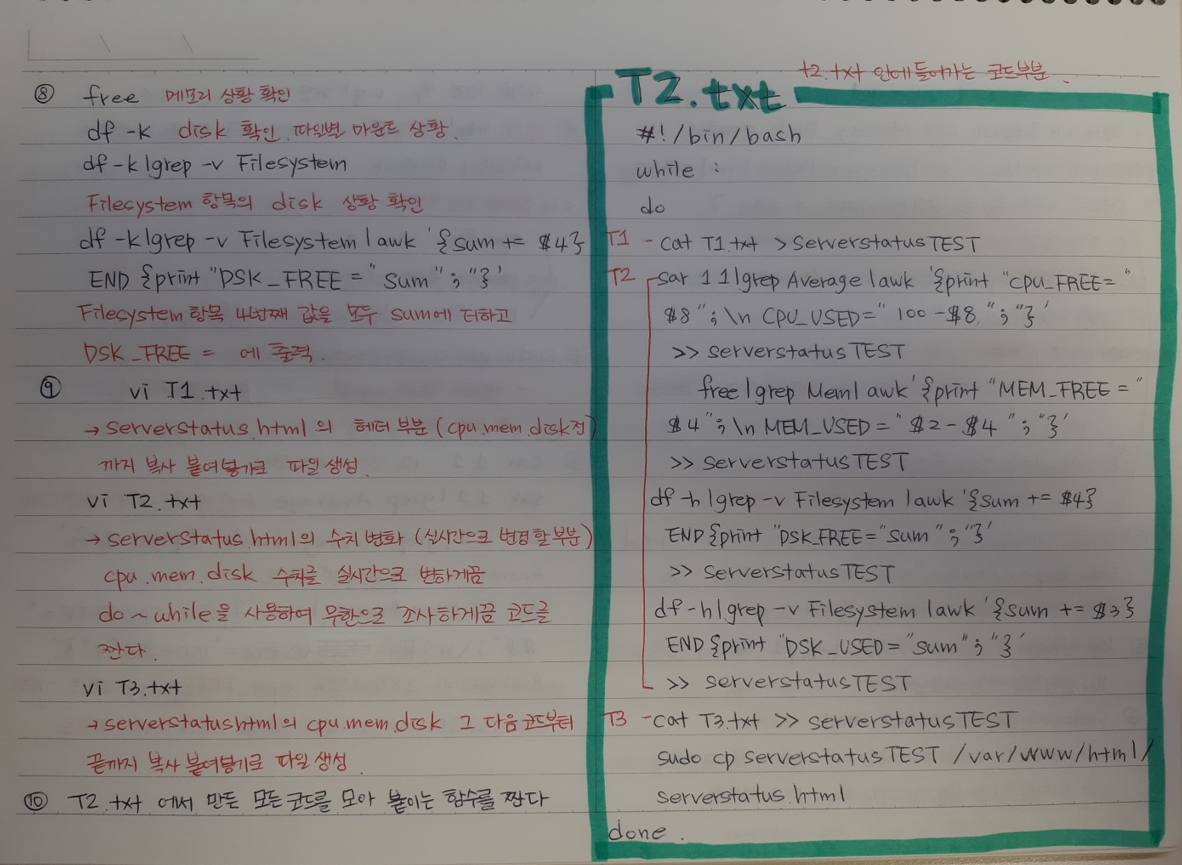 ⑧ free 메모리 상황 확인
df -k disk 확인. 파일별 마운트 상황.
df -k |grep -v Filesystem
Filesystem 항목의 disk 상황 확인
df -k|grep -v Filesystem |awk '{sum += $4}
END {print "DSK_FREE = " sum " ; "}'
Filesystem 항목 4번째 값을 모두 sum에 더하고
DSK_FREE = 에 출력.
⑨ vi T1.txt
→ serverstatus.html 의 헤더 부분 (cpu.mem.disk전)
까지 복사 붙여넣기로 파일 생성.
vi T2.txt
→ serverstatus.html의 수치 변화 (실시간으로 변경할부분)
cpu.mem.disk 수치를 실시간으로 변하게끔
do ~ while을 사용하여 무한으로 조사하게끔 코드를
짠다.
vi T3.txt
→ serverstatushtml의 cpu.mem.disk 그 다음 코드부터
끝까지 복사 붙여넣기로 파일 생성.
⑩ T2.txt 에서 만든 모든코드를 모아 붙이는 함수를 짠다
T2.txt t2.txt 안에 들어가는 코드부분.
#!/bin/bash
while :
do
T1 - cat T1.txt > serverstatusTEST
T2 sar 1 1|grep Average |awk '{print "CPU_FREE= "
$8 " ; \n CPU_USED=" 100 -$8 " ; "}'
>> serverstatusTEST
free |grep Mem| awk '{print "MEM_FREE = "
$4 " ; \n MEM_USED = " $2 - $4 " ; "}'
>> serverstatusTEST
df -h |grep -v Filesystem |awk '{sum += $4}
END {print "DSK_FREE="sum " ; "}'
>> serverstatusTEST
df -h|grep -v Filesystem |awk '{sum += $3}
END {print "DSK_USED="sum" ; "}'
>> serverstatusTEST
T3 -cat T3.txt >> serverstatusTEST
sudo cp serverstatusTEST /var/www/html/
serverstatus.html
done.